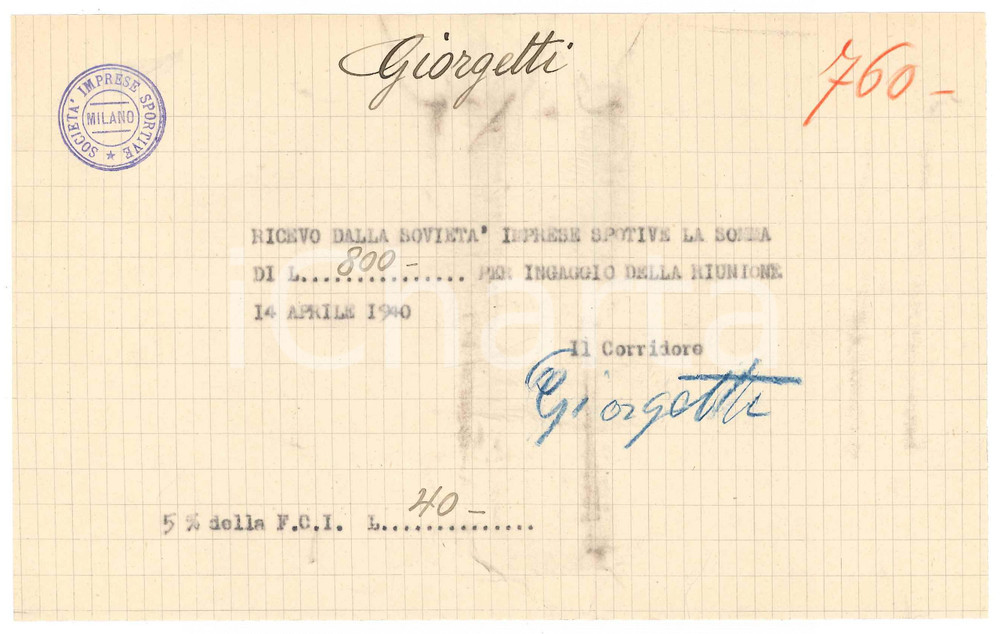 Giorgetti
760-
SOCIETA' IMPRESE SPORTIVE ★
MILANO
RICEVO DALLA SOVIETA' IMPRESE SPOTIVE LA SOMMA
DI L....800-.... PER INGAGGIO DELLA RIUNIONE
14 APRILE 1940
Il Corridore
Giorgetti
5 % della F.C.I. L....40-....
iCharta